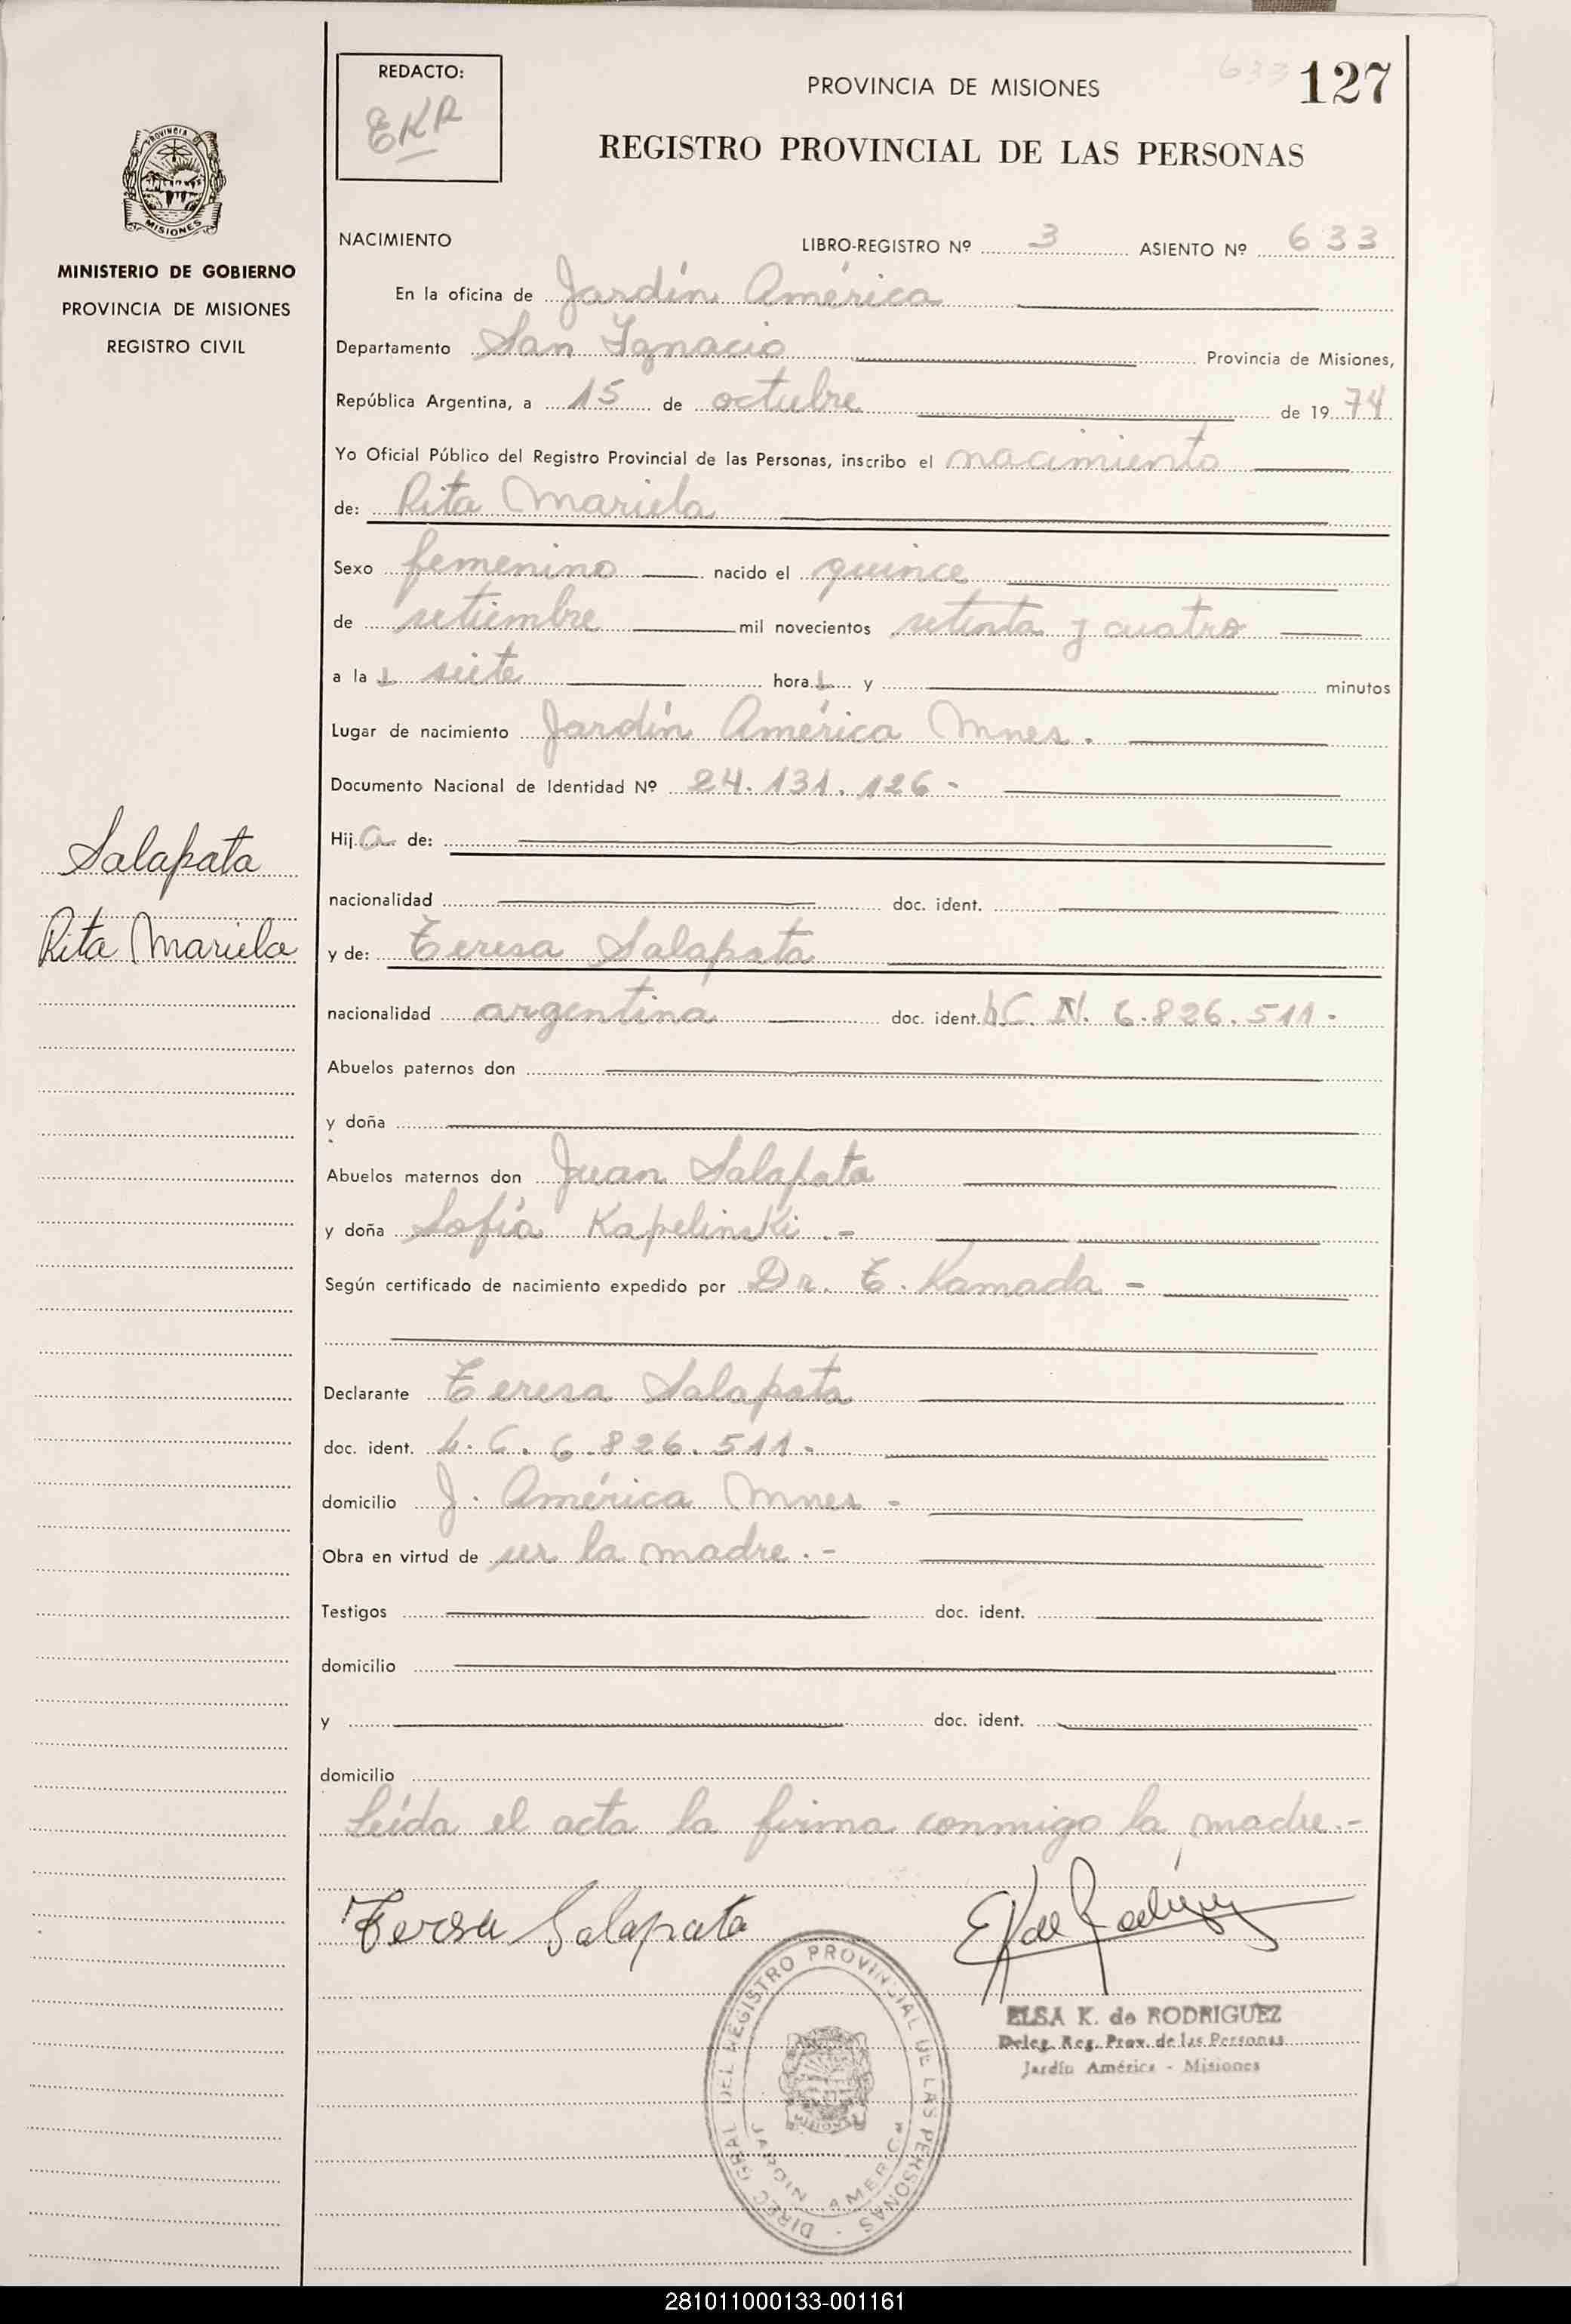 REDACTO:
EKR
PROVINCIA DE MISIONES
633 127
REGISTRO PROVINCIAL DE LAS PERSONAS
PROVINCIA DE
MISIONES
MINISTERIO DE GOBIERNO
PROVINCIA DE MISIONES
REGISTRO CIVIL
NACIMIENTO LIBRO-REGISTRO Nº 3 ASIENTO Nº 633
En la oficina de Jardín América
Departamento San Ignacio Provincia de Misiones,
República Argentina, a 15 de octubre de 1974
Yo Oficial Público del Registro Provincial de las Personas, inscribo el nacimiento
de: Rita Mariela
Sexo femenino nacido el quince
de setiembre mil novecientos setenta y cuatro
a las siete horas y minutos
Lugar de nacimiento Jardín América Mnes.
Documento Nacional de Identidad Nº 24.131.126-
Hija de:
nacionalidad doc. ident.
Salapata
Rita Mariela
y de: Teresa Salapata
nacionalidad argentina doc. ident. L.C. N. 6.826.511-
Abuelos paternos don
y doña
Abuelos maternos don Juan Salapata
y doña Sofía Kapelinski.-
Según certificado de nacimiento expedido por Dr. T. Kamada -
Declarante Teresa Salapata
doc. ident. L.C. 6.826.511-
domicilio J. América Mnes -
Obra en virtud de ser la madre.-
Testigos doc. ident.
domicilio
y doc. ident.
domicilio
Leída el acta la firma conmigo la madre.-
Teresa Salapata EK de Rodríguez
ELSA K. de RODRIGUEZ
Deleg. Reg. Prov. de las Personas
Jardín América - Misiones
DIREC GRAL DEL REGISTRO PROVINCIAL DE LAS PERSONAS -
MISIONES
JARDIN AMERICA
281011000133-001161